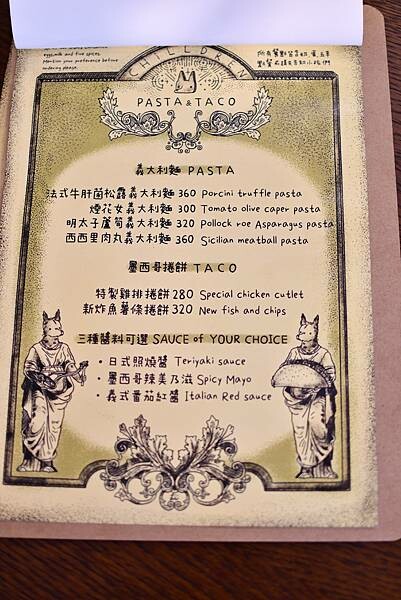 eggmilk and five spices.
Mention your preference before
ordering please.
CHILLDREN
PASTA & TACO
義大利麵 PASTA
法式牛肝菌松露義大利麵 360 Porcini truffle pasta
煙花女義大利麵 300 Tomato olive caper pasta
明太子蘆筍義大利麵 320 Pollock roe Asparagus pasta
西西里肉丸義大利麵 360 Sicilian meatball pasta
墨西哥捲餅 TACO
特製雞排捲餅 280 Special chicken cutlet
新炸魚薯條捲餅 320 New fish and chips
三種醬料可選 SAUCE of YOUR CHOICE
・日式照燒醬 Teriyaki sauce
・墨西哥辣美乃滋 Spicy Mayo
・義式番茄紅醬 Italian Red sauce